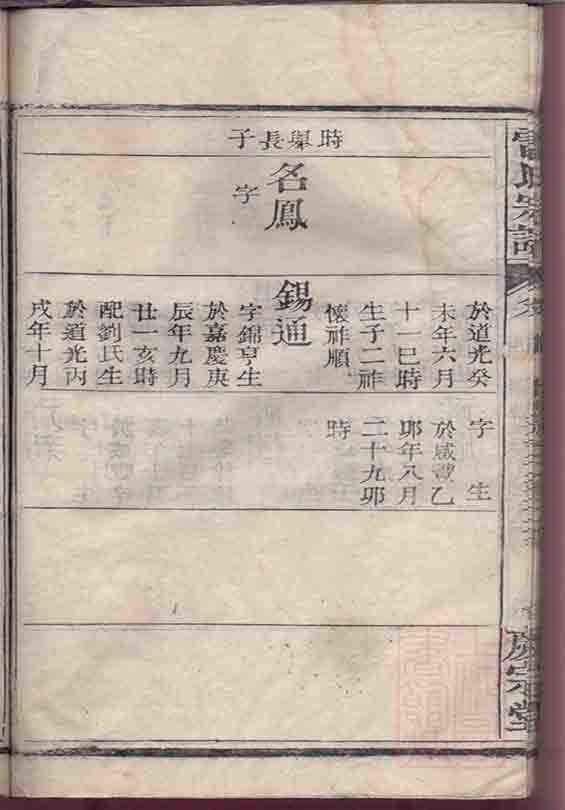 氏宗譜
宗堂
時舉長子
名鳳
字
於道光癸
未年六月
十一巳時
生子二祚
懷祚順
錫通
字錦亨生
於嘉慶庚
辰年九月
廿一亥時
配劉氏生
於道光丙
戌年十月
字 生
於咸豐乙
卯年八月
二十九卯
時